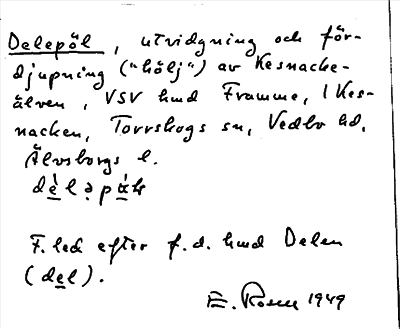 Delepöl, utvidgning och för-
djupning ("hölj") av Kesnacke-
älven, VSV hmd Framme, i Kes-
nacken, Torrskogs sn, Vedbo hd,
Älvsborgs l.
F. led efter f.d. hmd Delen
(del).
E. Rosell 1949